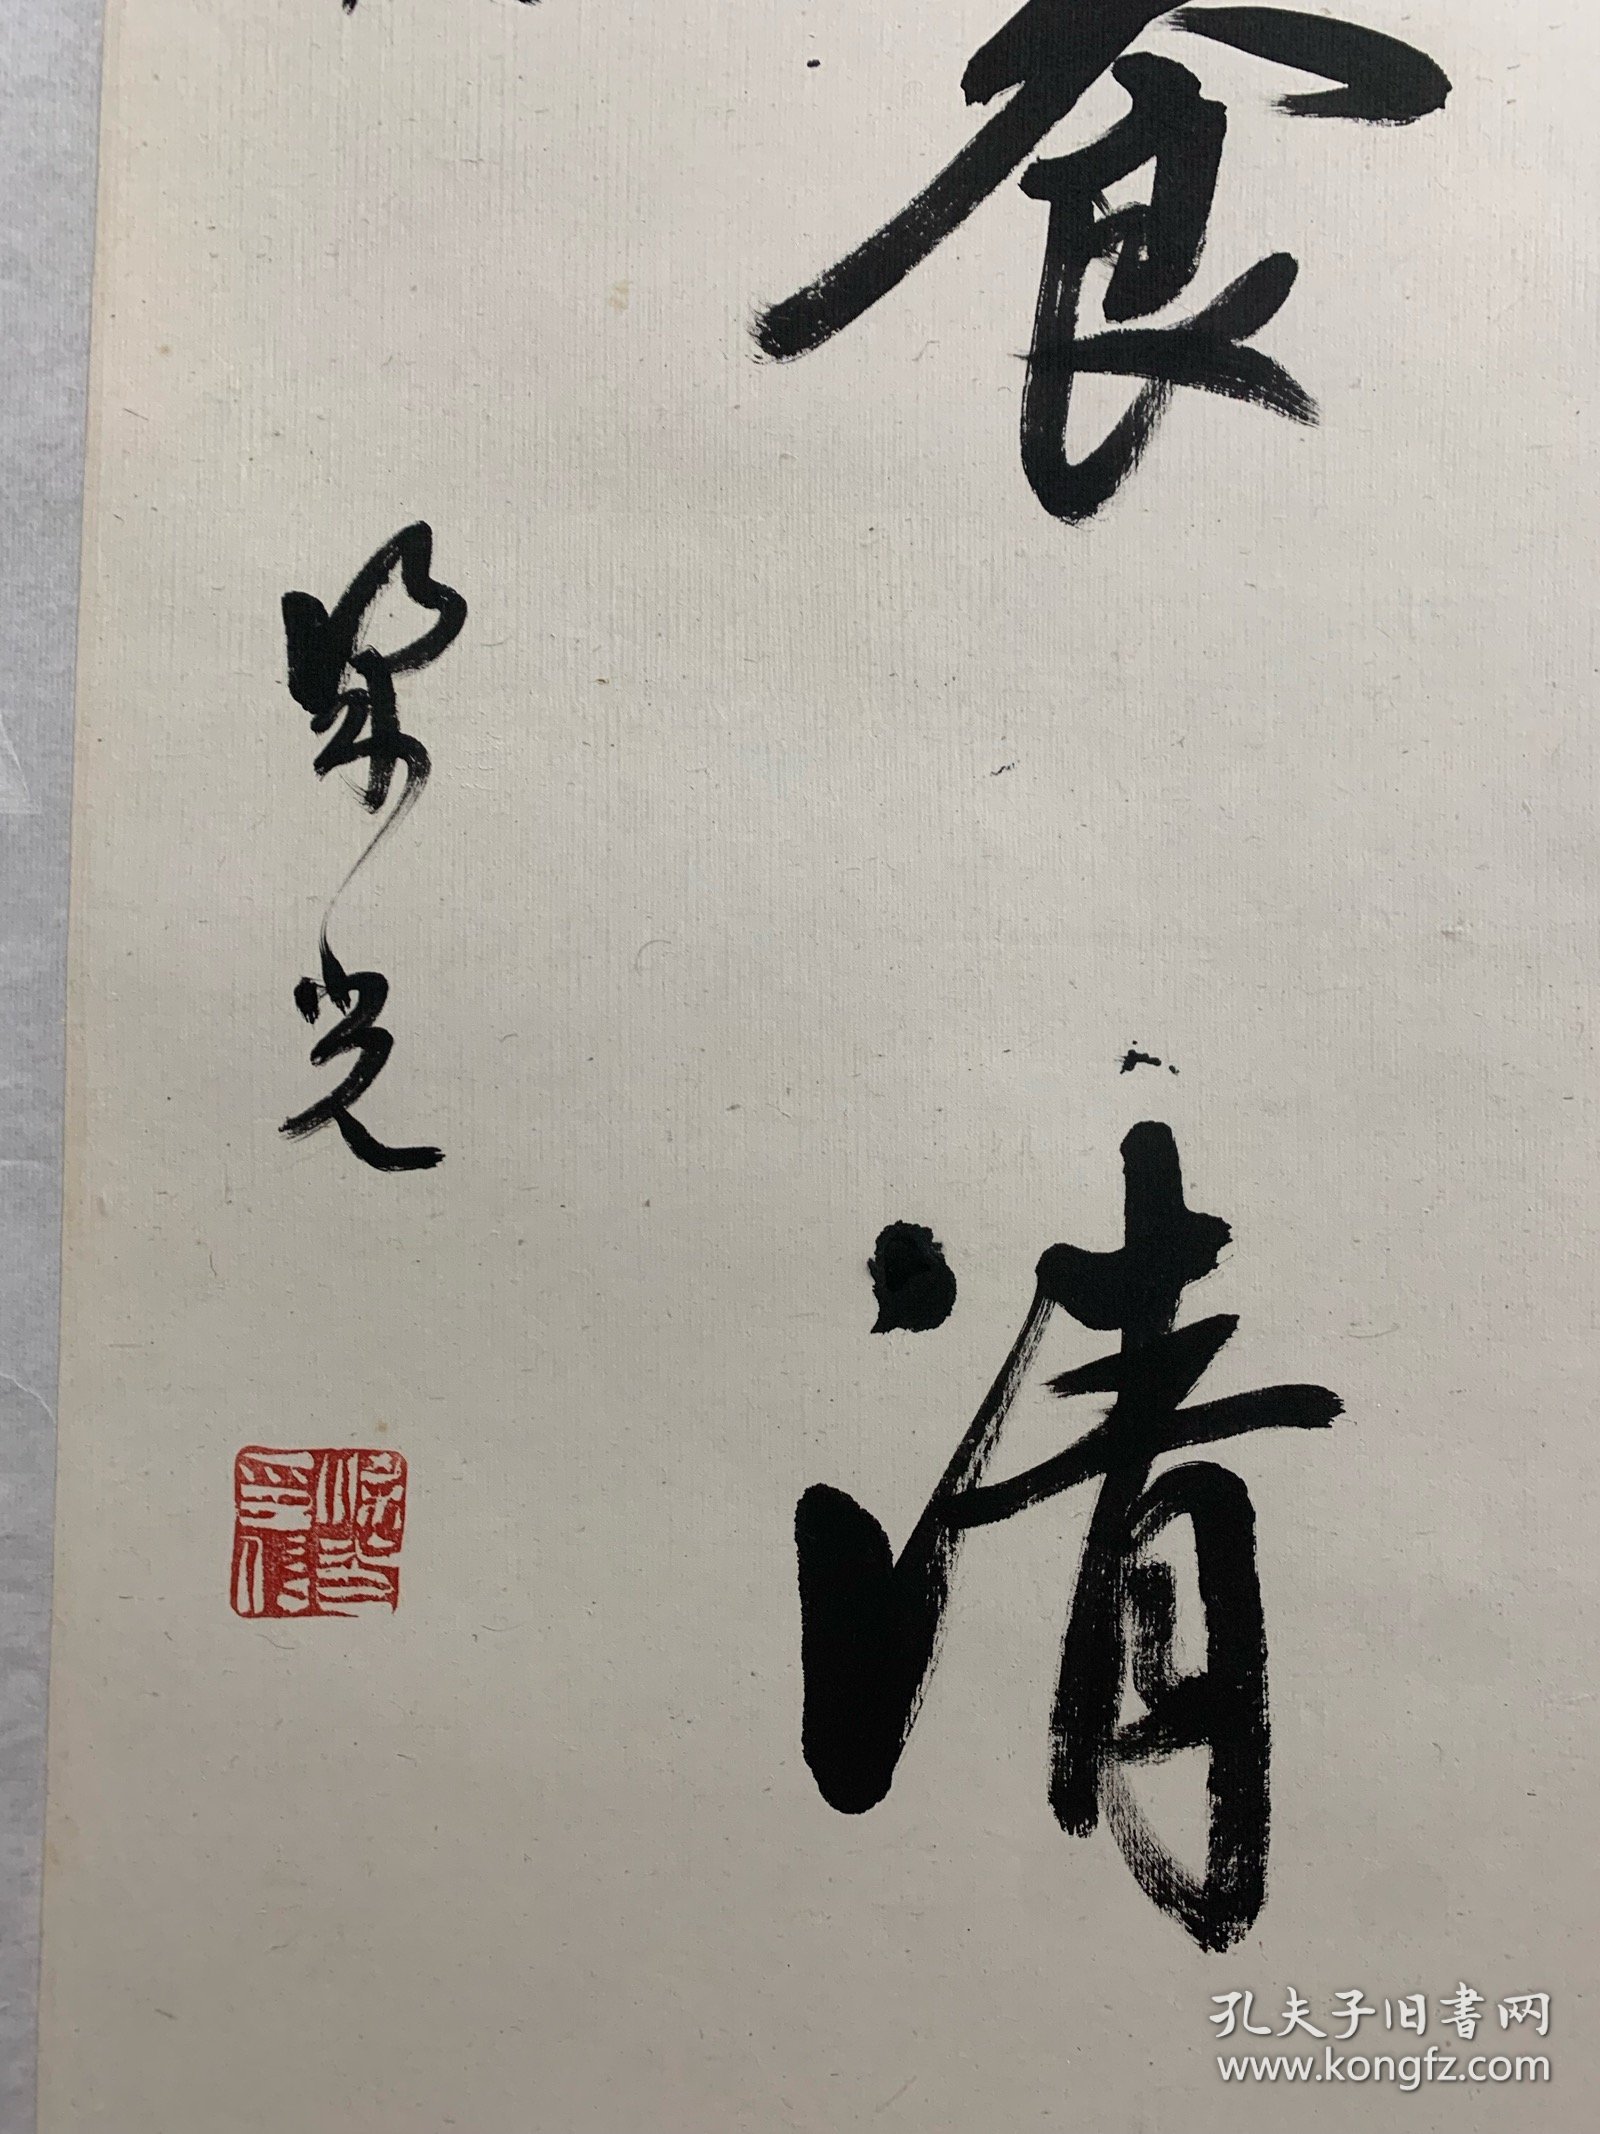 食清
梁光
孔夫子旧书网
www.kongfz.com